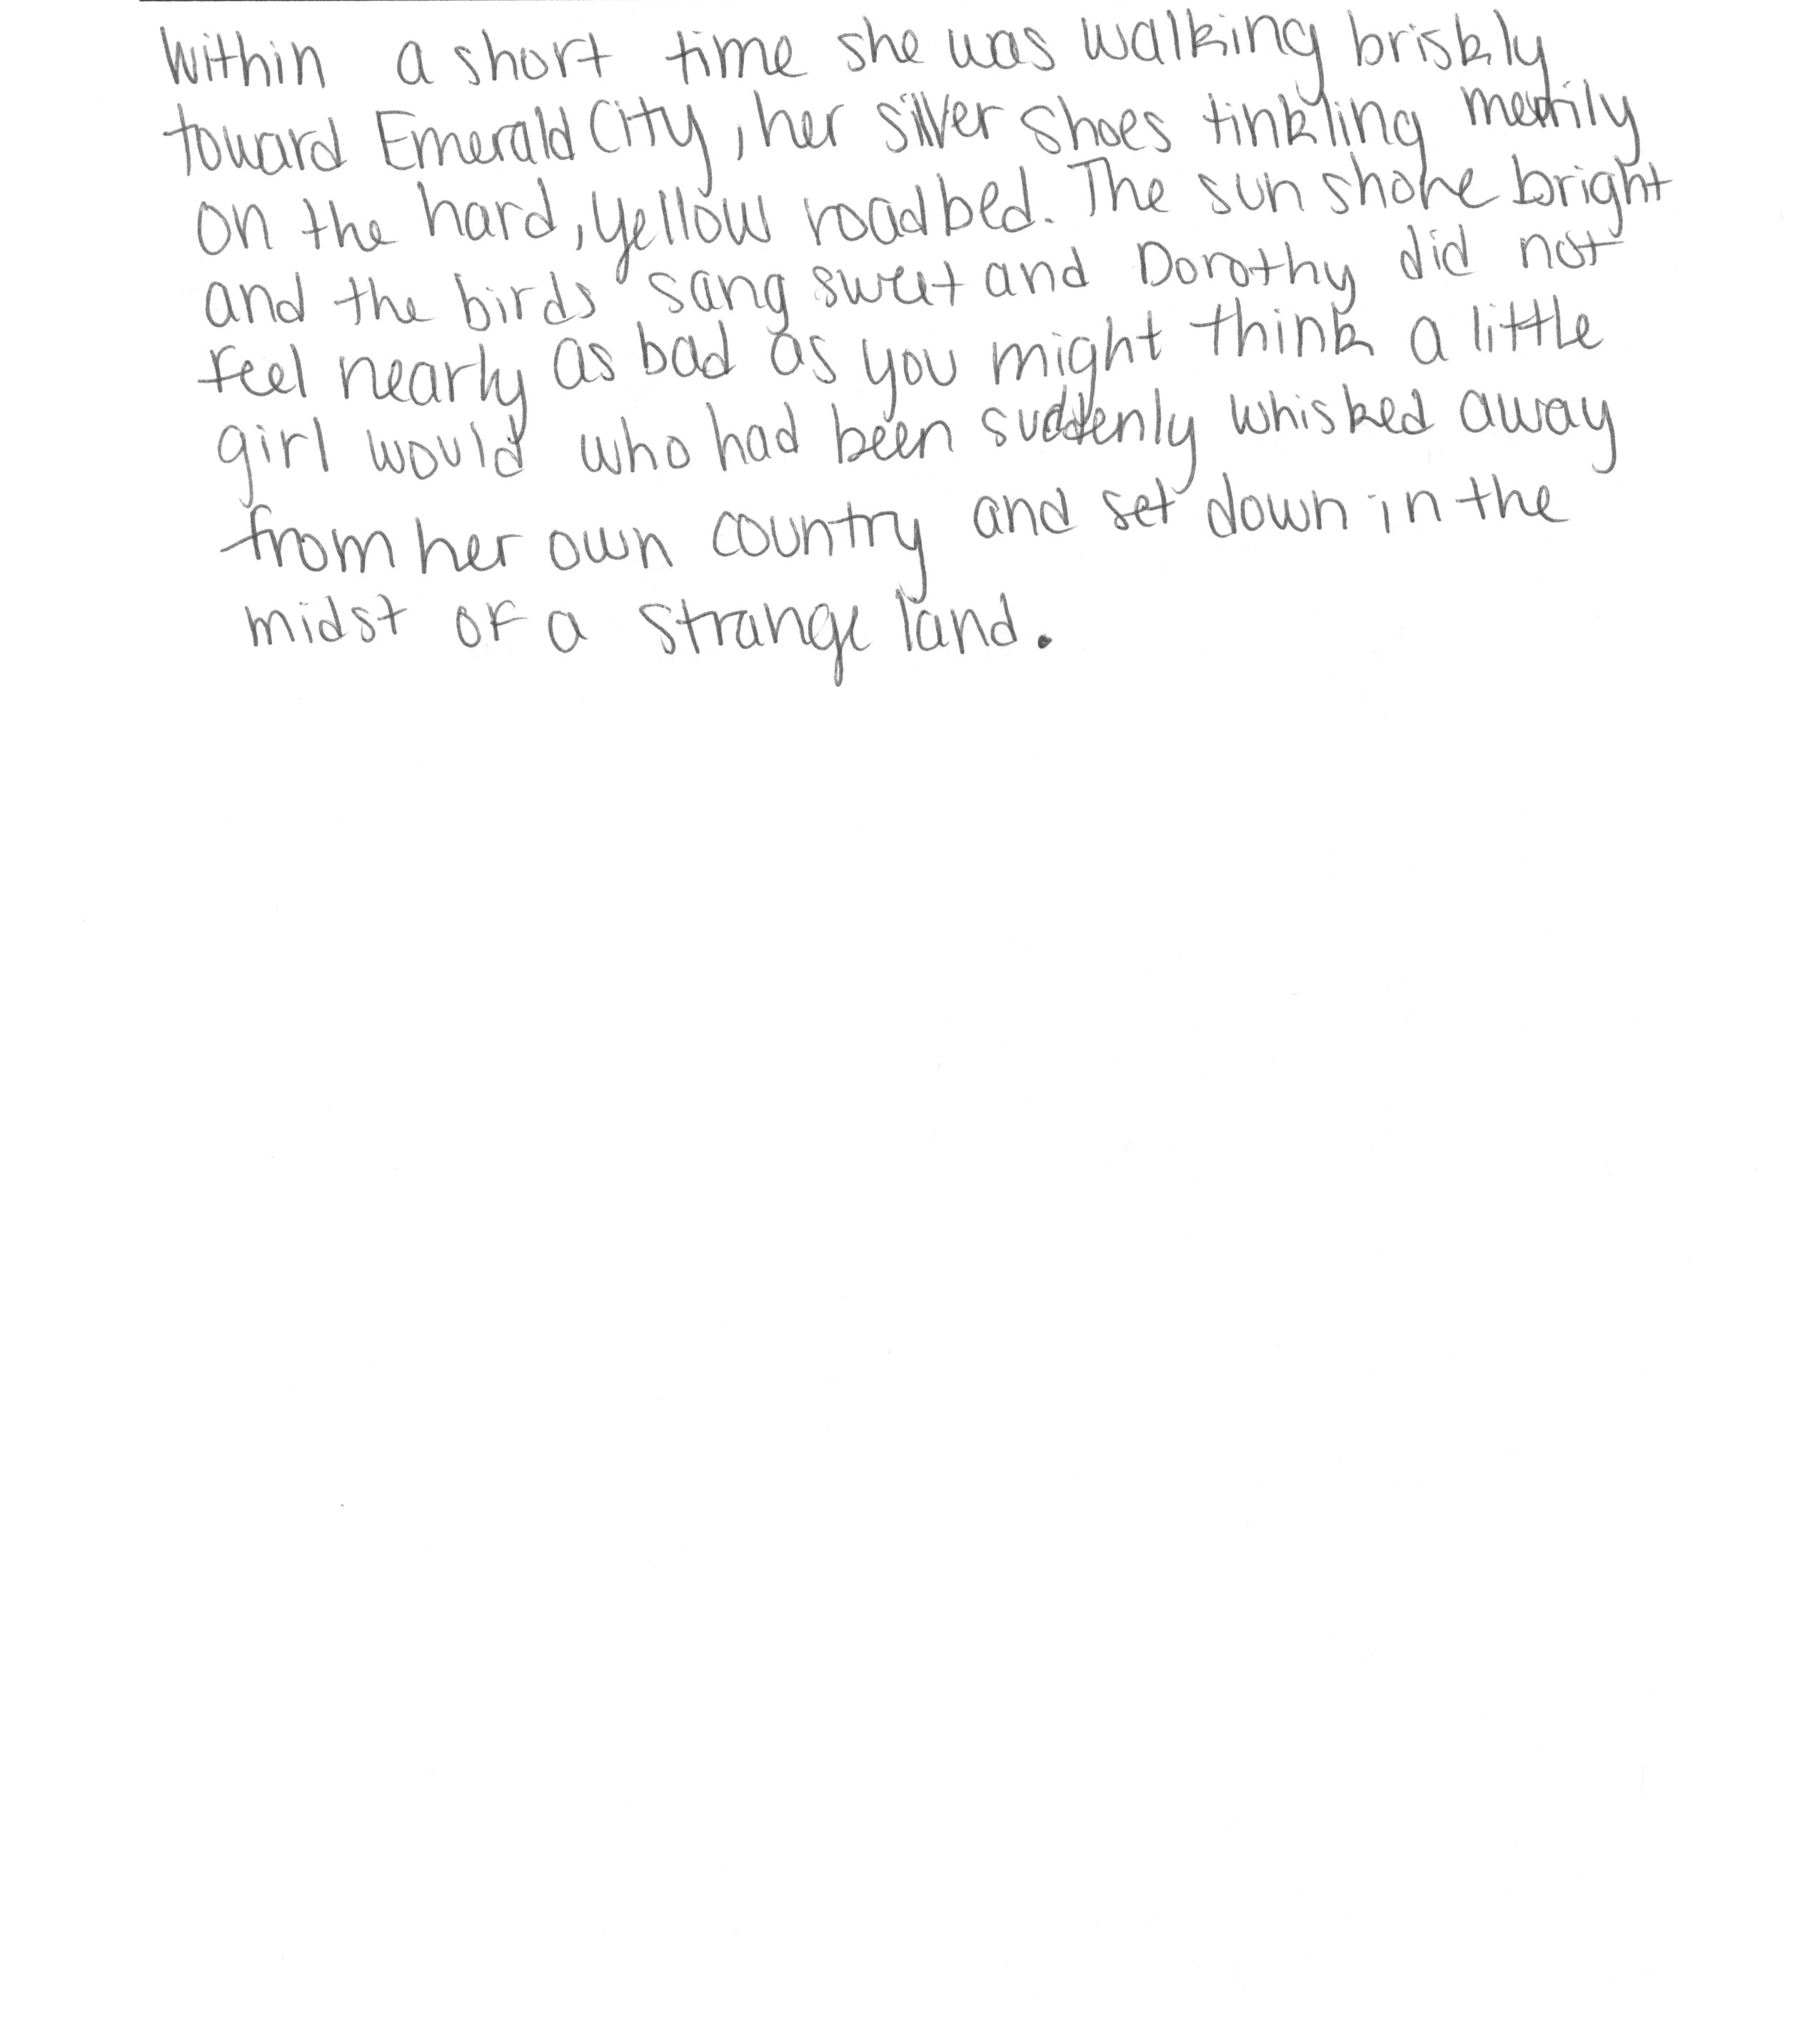 Within a short time she was walking briskly
toward Emerald City, her silver shoes tinkling merrily
on the hard, yellow roadbed. The sun shone bright
and the birds sang sweet and Dorothy did not
feel nearly as bad as you might think a little
girl would who had been suddenly whisked away
from her own country and set down in the
midst of a strange land.